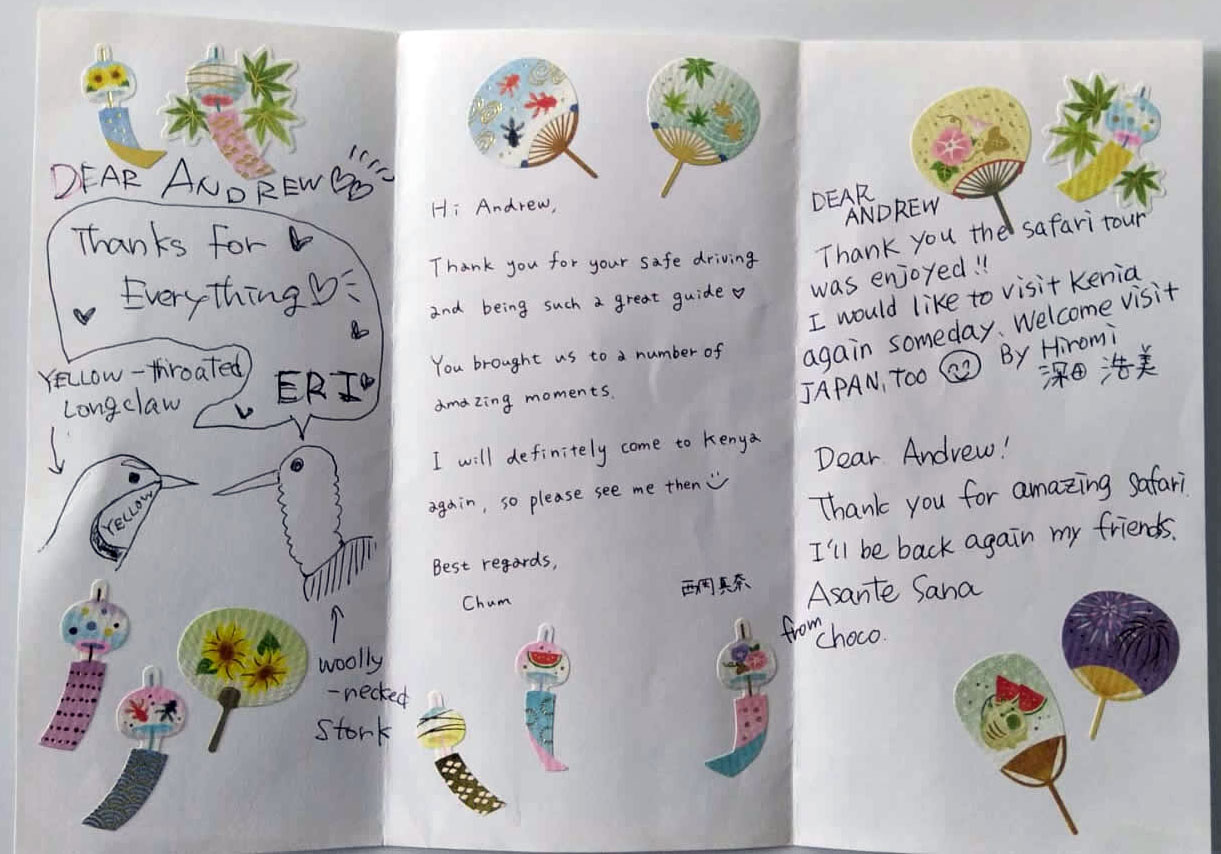 DEAR ANDREW
Thanks for
Everything
ERI
YELLOW-throated
Longclaw
YELLOW
woolly
-necked
Stork
Hi Andrew,
Thank you for your safe driving
and being such a great guide ♡
You brought us to a number of
amazing moments.
I will definitely come to Kenya
again, so please see me then
Best regards,
Chum
西岡真奈
DEAR
ANDREW
Thank you the safari tour
was enjoyed!!
I would like to visit Kenia
again someday. Welcome visit
JAPAN, TOO By Hiromi
深田 浩美
Dear Andrew!
Thank you for amazing safari.
I'll be back again my friends.
Asante Sana
from choco.